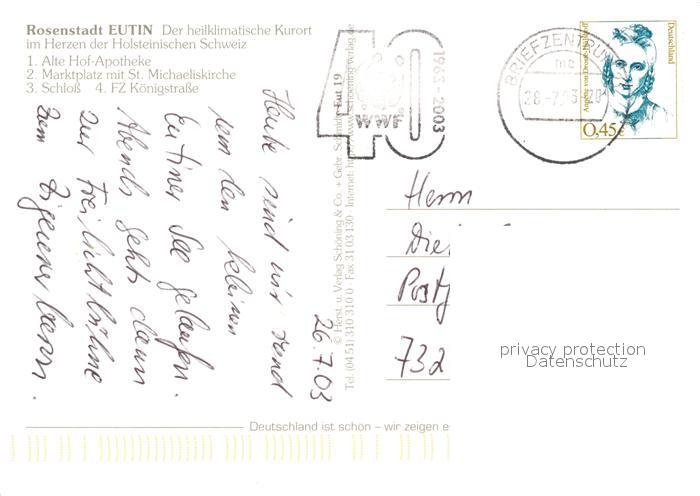 Rosenstadt EUTIN Der heilklimatische Kurort
im Herzen der Holsteinischen Schweiz
1. Alte Hof-Apotheke
2. Marktplatz mit St. Michaeliskirche
3. Schloß 4. FZ Königstraße
26.7.03
Heute sind wir rund
um den kleinen
Eutiner See gelaufen.
Abends gehts dann
zur Freilichtbühne
zum Zigeunerbaron.
Eut 19
© Herst. u. Verlag Schöning & Co. + Gebr. Schmidt
Tel. (04 51) 310 310 0 · Fax 31 03 130 · Internet:
40
WWF
1963 - 2003
BRIEFZENTRUM
Annette von Droste-Hülshoff
Deutschland
0,45€
Herrn
Die
Post
732
privacy protection
Datenschutz
Deutschland ist schön – wir zeigen e